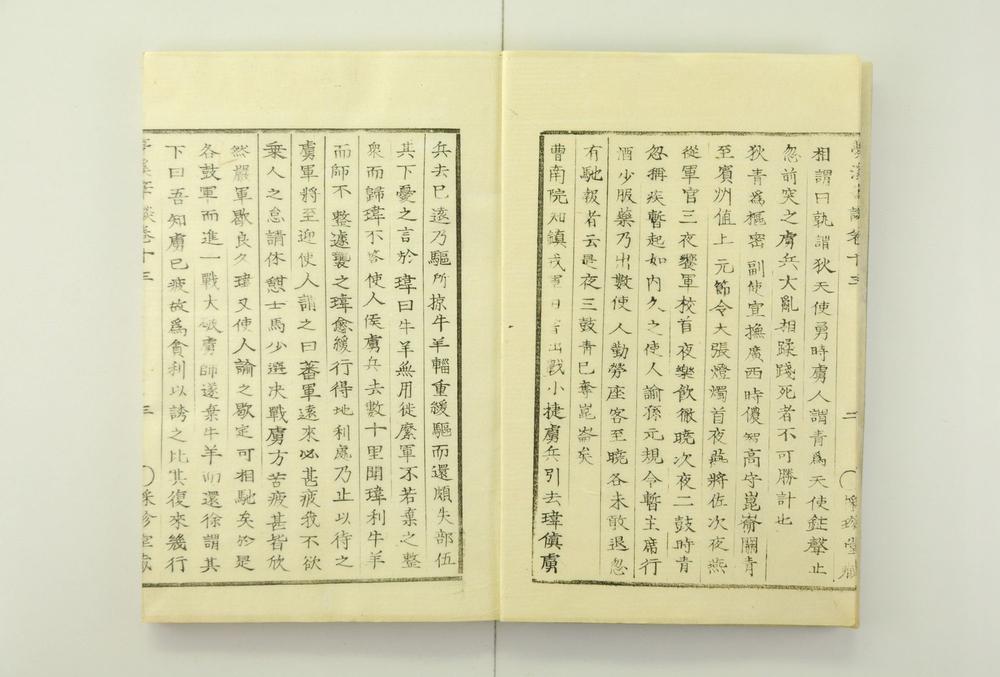 夢溪筆談卷十三 二
相謂曰孰謂狄天使勇時虜人謂青爲天使鉦聲止
忽前突之虜兵大亂相蹂踐死者不可勝計也
狄青爲樞密副使宣撫廣西時儂智高守崑崙關青
至賓州值上元節令大張燈燭首夜燕將佐次夜燕
從軍官三夜饗軍校首夜樂飲徹曉次夜二鼓時青
忽稱疾暫起如內久之使人諭孫元規令暫主席行
酒少服藥乃出數使人勤勞座客至曉各未敢退忽
有馳報者云是夜三鼓青已奪崑崙矣
曹南院知鎮戎軍日嘗出戰小捷虜兵引去瑋偵虜
兵去已遠乃驅所掠牛羊輜重緩驅而還頗失部伍
其下憂之言於瑋曰牛羊無用徒縻軍不若棄之整
衆而歸瑋不答使人候虜兵去數十里聞瑋利牛羊
而師不整遽襲之瑋愈緩行得地利處乃止以待之
虜軍將至迎使人謂之曰蕃軍遠來必甚疲我不欲
乘人之怠請休憩士馬少選決戰虜方苦疲甚皆欣
然嚴軍歇良久瑋又使人諭之歇定可相馳矣於是
各鼓軍而進一戰大破虜師遂棄牛羊而還徐謂其
下曰吾知虜已疲故爲貪利以誘之比其復來幾行
夢溪筆談卷十三 三